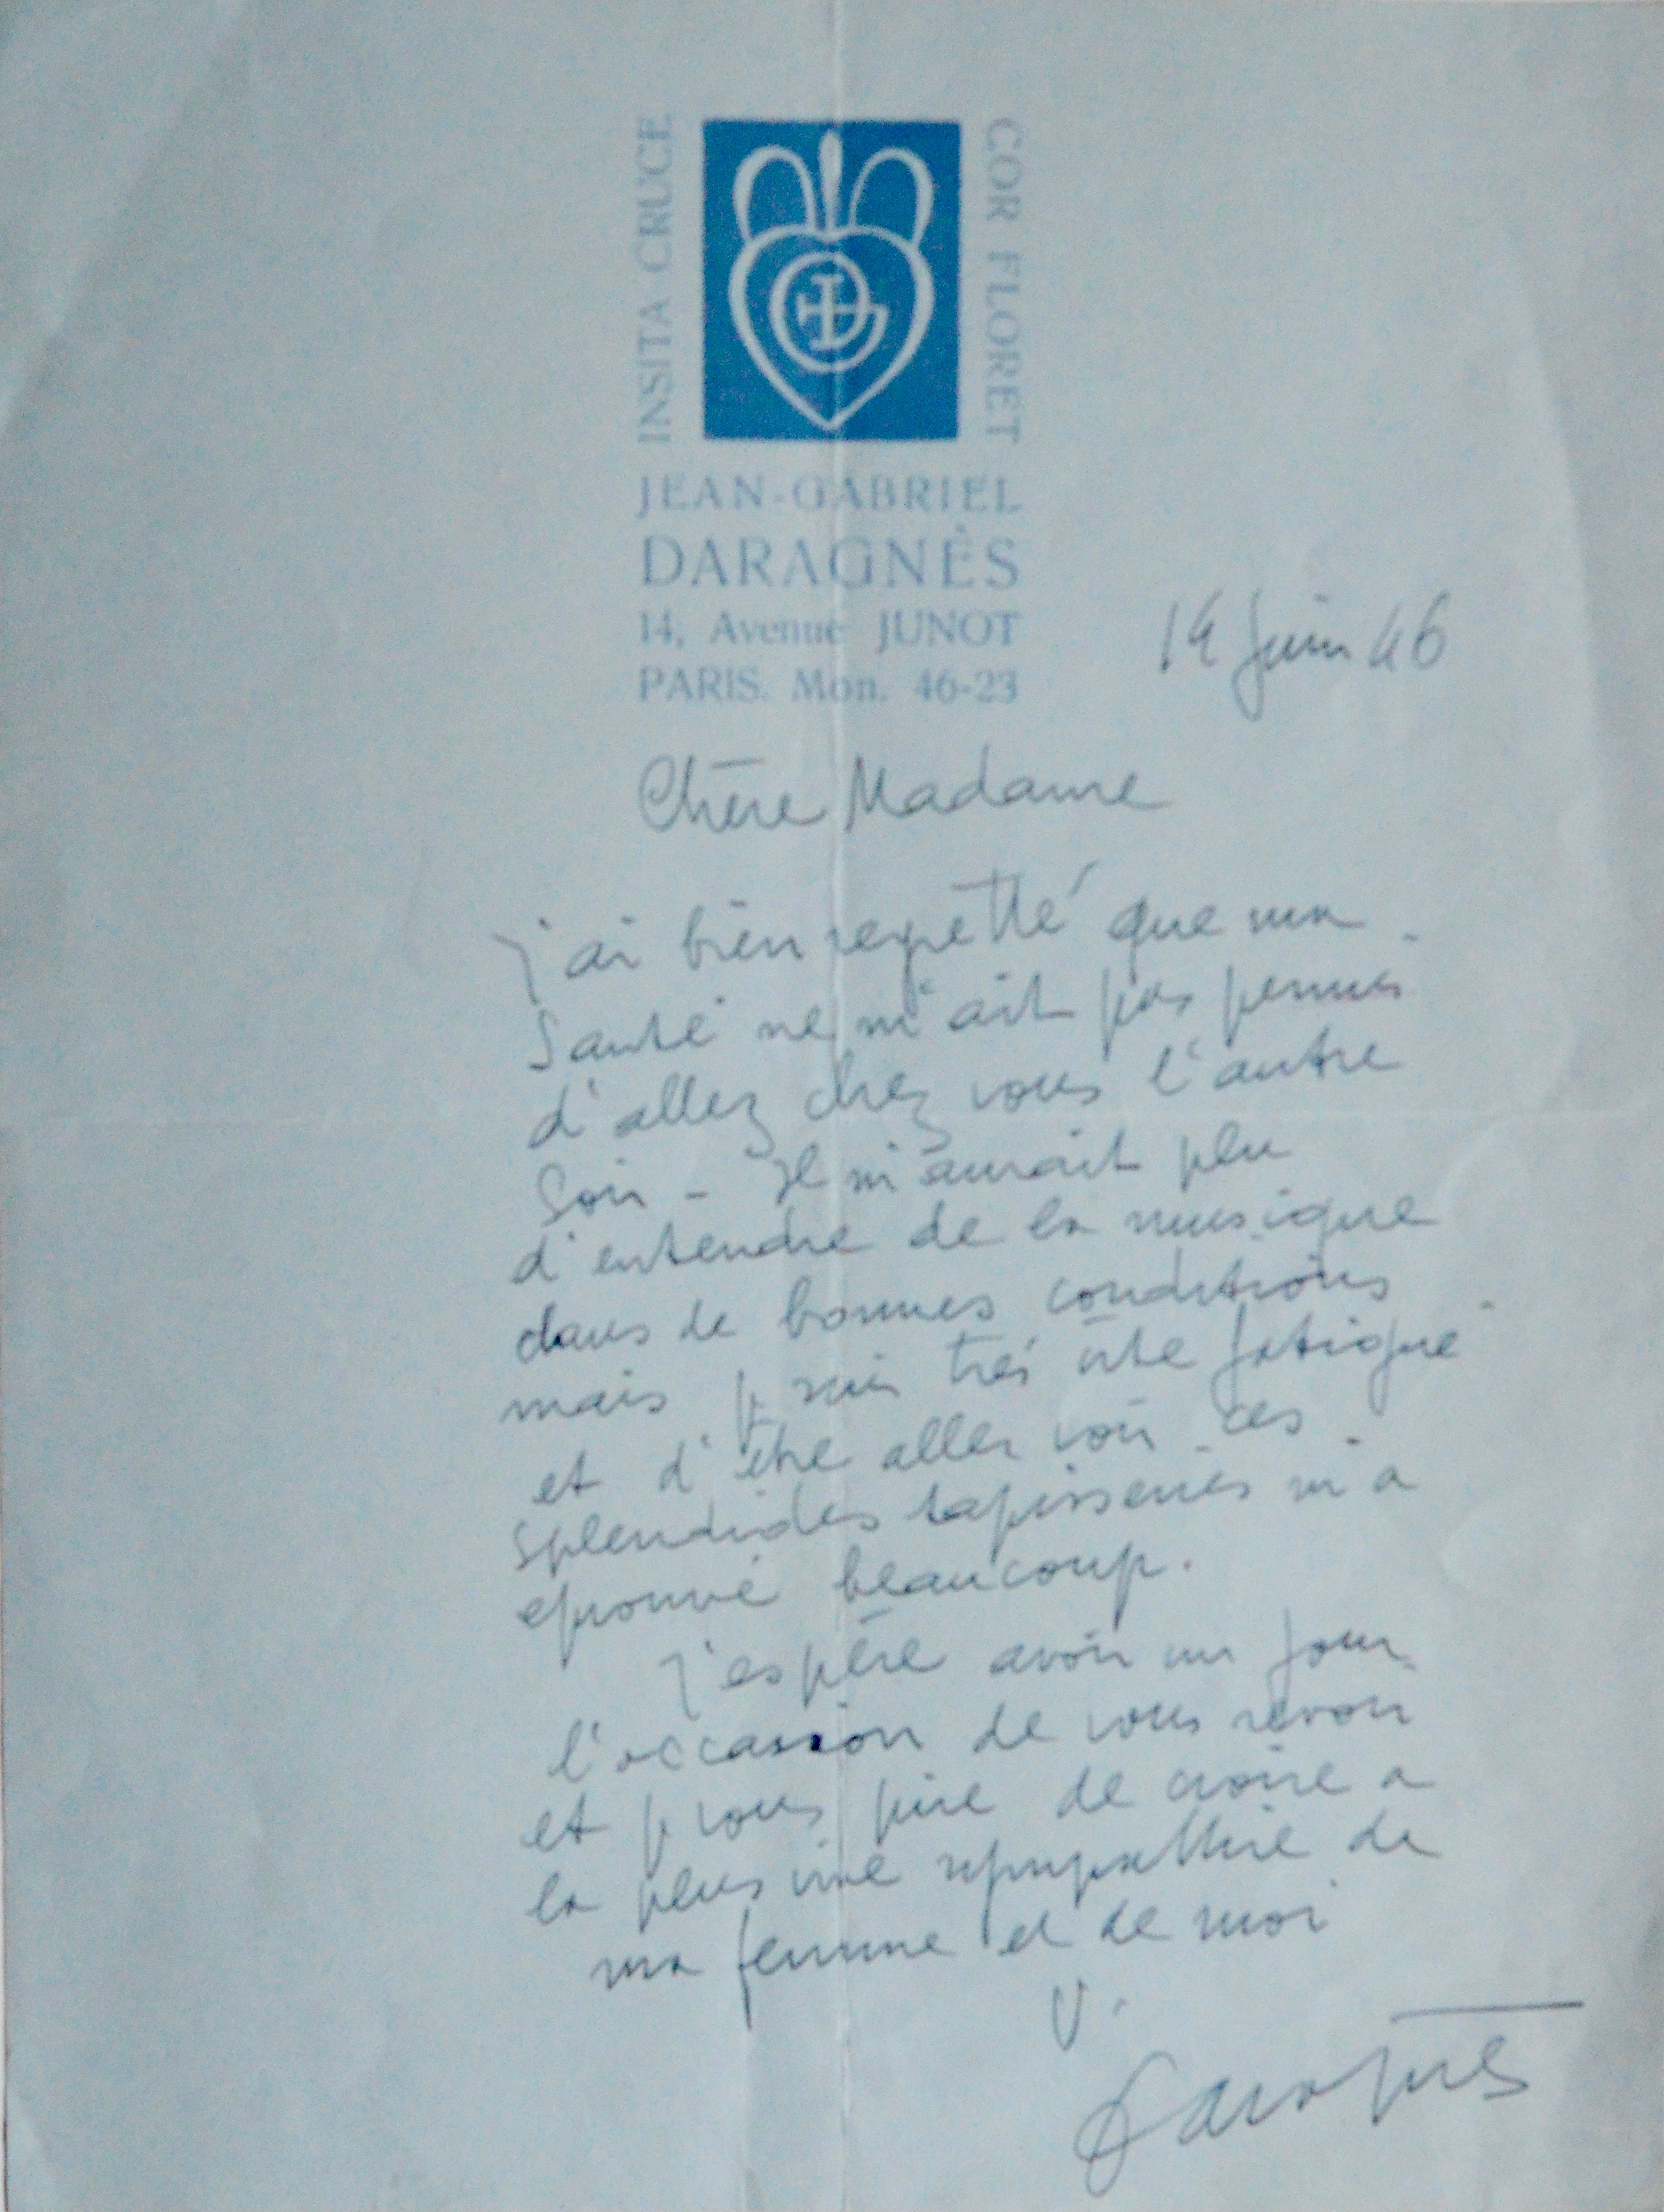 INSITA CRUCE
COR FLORET
JEAN-GABRIEL
DARAGNÈS
14, Avenue JUNOT
PARIS. Mon. 46-23
14 Juin 46
Chère Madame
j'ai bien regretté que ma
santé ne m'ait pas permis
d'allez chez vous l'autre
soir - Il m'aurait plu
d'entendre de la musique
dans de bonnes conditions
mais je suis très vite fatigué
et d'être aller voir ces
splendides tapisseries m'a
eprouvé beaucoup.
J'espère avoir un jour
l'occasion de vous revoir
et je vous prie de croire a
la plus vive sympathie de
ma femme et de moi
V.
Daragnès